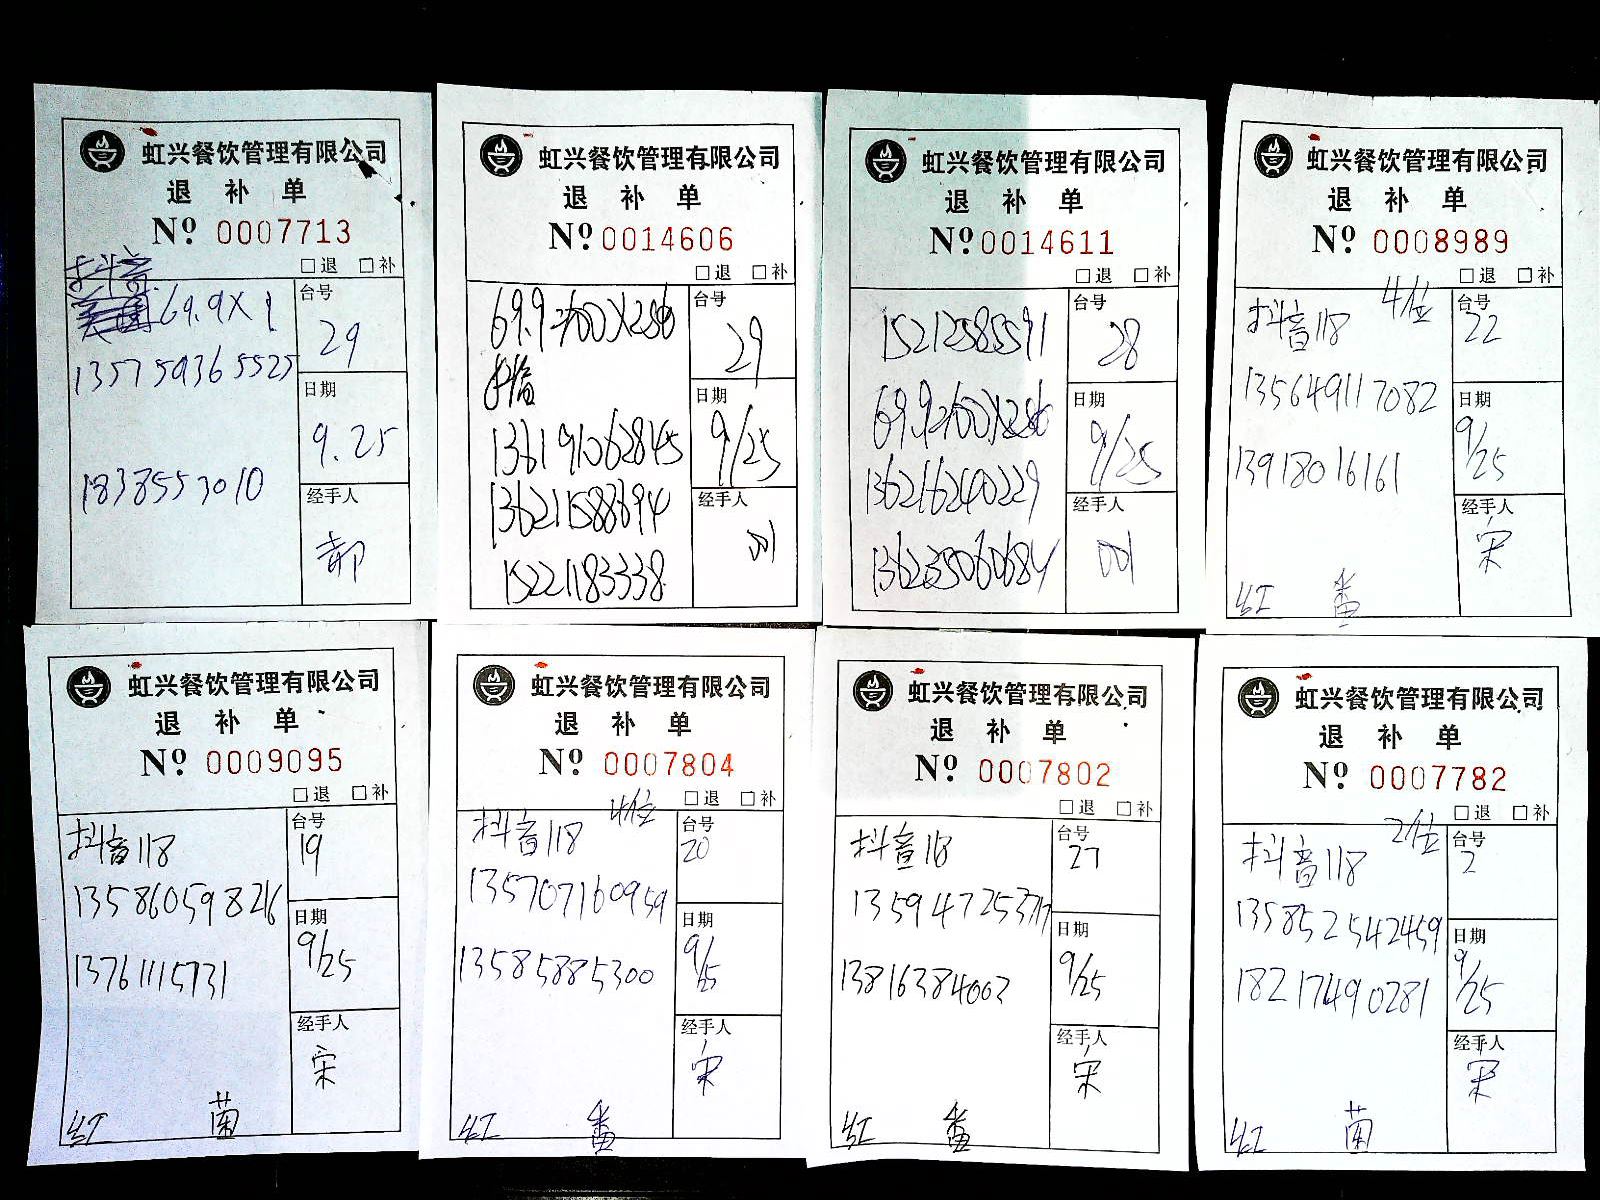 虹兴餐饮管理有限公司
退 补 单
Nº 0007713
□退 □补
抖音
69.9X1
135759365525
18385553010
台号
29
日期
9.25
经手人
郝
虹兴餐饮管理有限公司
退 补 单
Nº 0014606
□退 □补
抖音
136191062845
136211588694
15221183338
台号
29
日期
9/25
经手人
001
虹兴餐饮管理有限公司
退 补 单
Nº 0014611
□退 □补
15212585591
136216240229
136235060684
台号
28
日期
9/25
经手人
001
虹兴餐饮管理有限公司
退 补 单
Nº 0008989
□退 □补
抖音118 4位
135649117082
13918016161
红 番
台号
22
日期
9/25
经手人
宋
虹兴餐饮管理有限公司
退 补 单
Nº 0009095
□退 □补
抖音118
135860598216
13761115731
红 菌
台号
19
日期
9/25
经手人
宋
虹兴餐饮管理有限公司
退 补 单
Nº 0007804
□退 □补
抖音118 4位
135707160959
13585885300
红 番
台号
20
日期
9/25
经手人
宋
虹兴餐饮管理有限公司
退 补 单
Nº 0007802
□退 □补
抖音118
13816384003
红 番
台号
27
日期
9/25
经手人
宋
虹兴餐饮管理有限公司
退 补 单
Nº 0007782
□退 □补
抖音118 2位
135852542459
18217490281
红 菌
台号
2
日期
9/25
经手人
宋